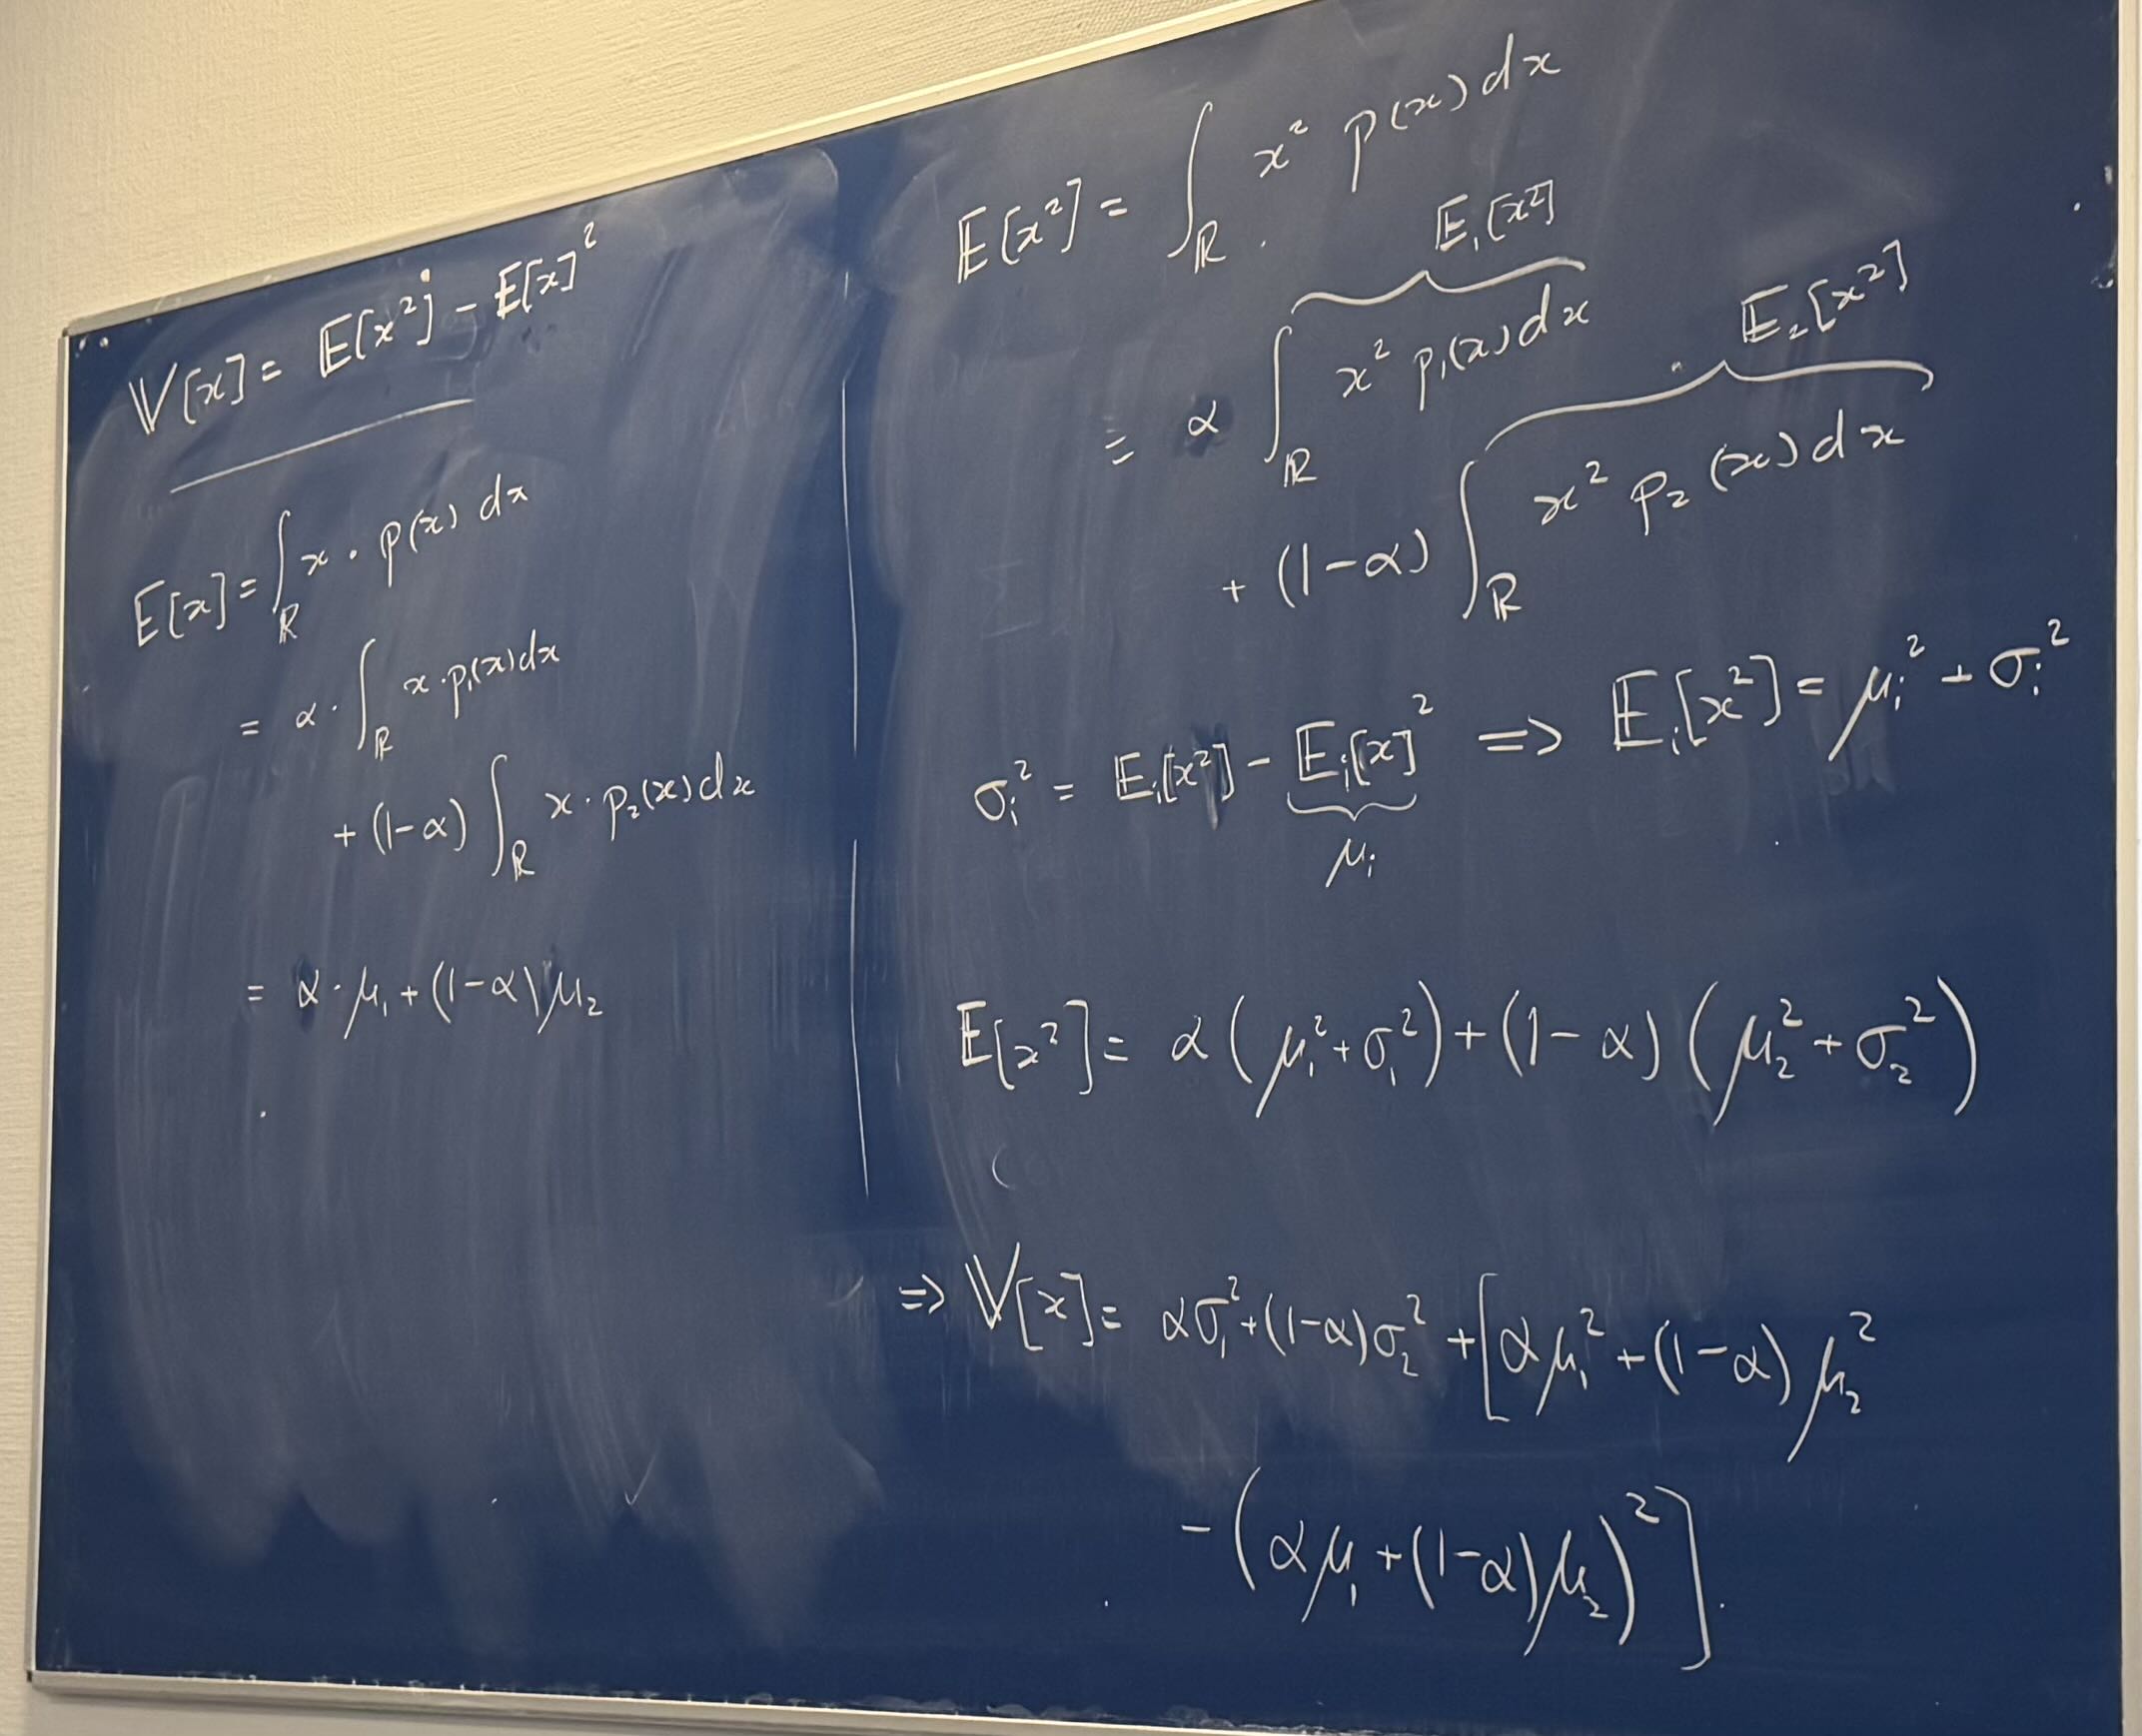 𝕍[x] = 𝔼[x²] - 𝔼[x]²
𝔼[x] = ∫_ℝ x · p(x) dx
= α · ∫_ℝ x · p₁(x) dx
+ (1-α) ∫_ℝ x · p₂(x) dx
= α · μ₁ + (1-α) μ₂
𝔼[x²] = ∫_ℝ x² p(x) dx
𝔼₁[x²]
= α ∫_ℝ x² p₁(x) dx
𝔼₂[x²]
+ (1-α) ∫_ℝ x² p₂(x) dx
σᵢ² = 𝔼ᵢ[x²] - 𝔼ᵢ[x]² ⇒ 𝔼ᵢ[x²] = μᵢ² + σᵢ²
μᵢ
𝔼[x²] = α (μ₁² + σ₁²) + (1-α) (μ₂² + σ₂²)
⇒ 𝕍[x] = ασ₁² + (1-α)σ₂² + [αμ₁² + (1-α) μ₂²
- (αμ₁ + (1-α)μ₂)²].